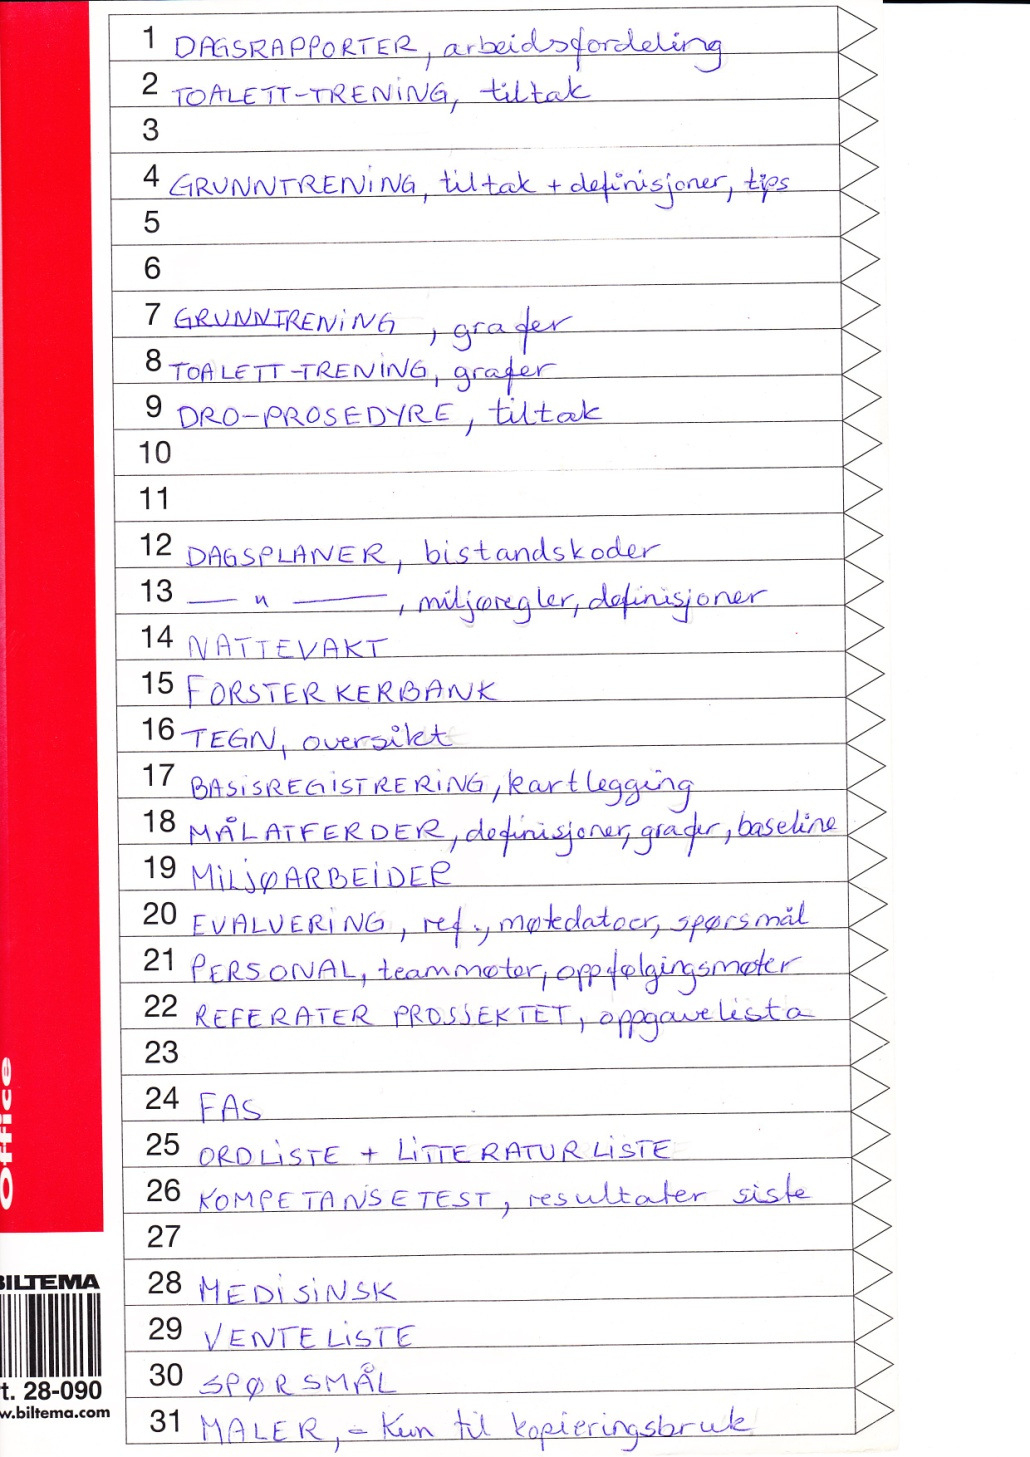 1 DAGSRAPPORTER, arbeidsfordeling
2 TOALETT-TRENING, tiltak
3
4 GRUNNTRENING, tiltak + definisjoner, tips
5
6
7 GRUNNTRENING, grafer
8 TOALETT-TRENING, grafer
9 DRO-PROSEDYRE, tiltak
10
11
12 DAGSPLANER, bistandskoder
13 — " —, miljøregler, definisjoner
14 NATTEVAKT
15 FORSTERKERBANK
16 TEGN, oversikt
17 BASISREGISTRERING, kartlegging
18 MÅLATFERDER, definisjoner, grafer, baseline
19 MILJØARBEIDER
20 EVALUERING, ref., møtedatoer, spørsmål
21 PERSONAL, teammøter, oppfølgingsmøter
22 REFERATER PROSSEKTET, oppgavelista
23
24 FAS
25 ORDLISTE + LITTERATURLISTE
26 KOMPETANSETEST, resultater siste
27
28 MEDISINSK
29 VENTELISTE
30 SPØRSMÅL
31 MALER, - Kun til kopieringsbruk
Office
BILTEMA
t. 28-090
w.biltema.com